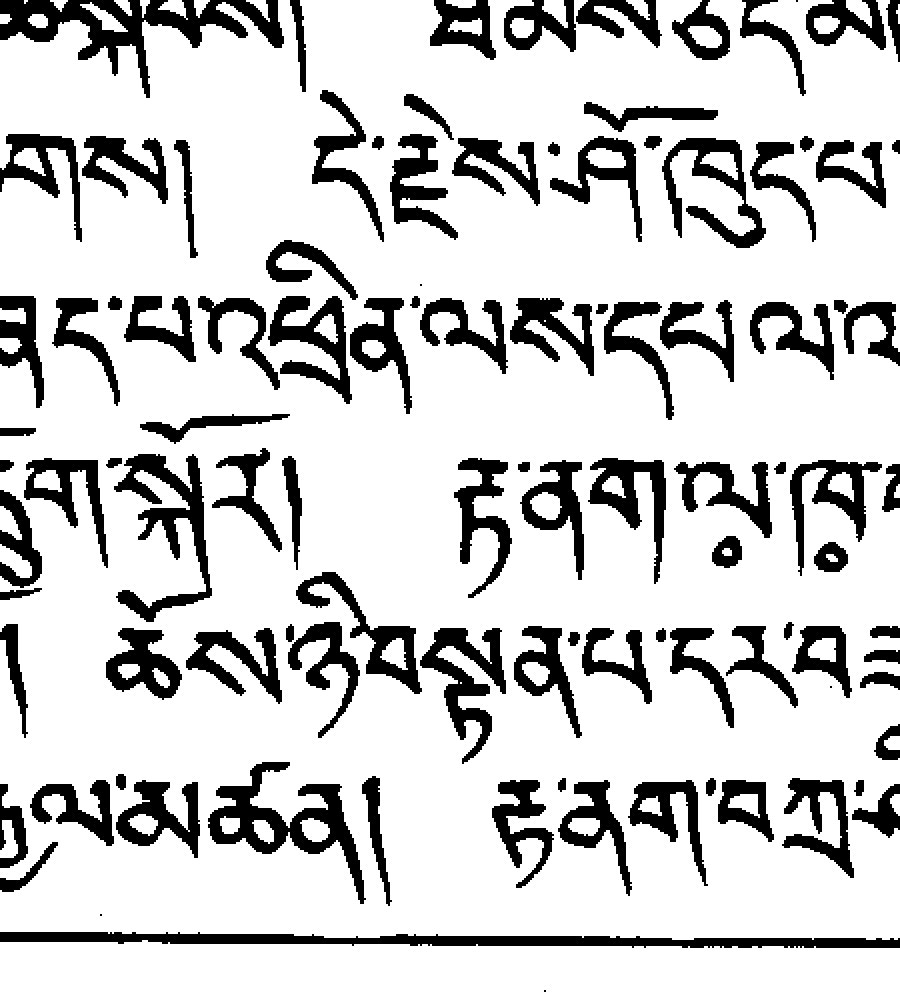 སྐབས། ཐམས་ཅད་མ
གས། དེ་རྗེས་ཤོ་ཁུང་པ་
ང་པ་འཕྲིན་ལས་དཔལ་འ
ག་སྐོར། རྟ་ནག་ལ༷་ཁ༷་
། ཆོས་ཉི་བསྟན་པ་དར་བ
རྒྱལ་མཚན།། རྟ་ནག་བཀྲ་